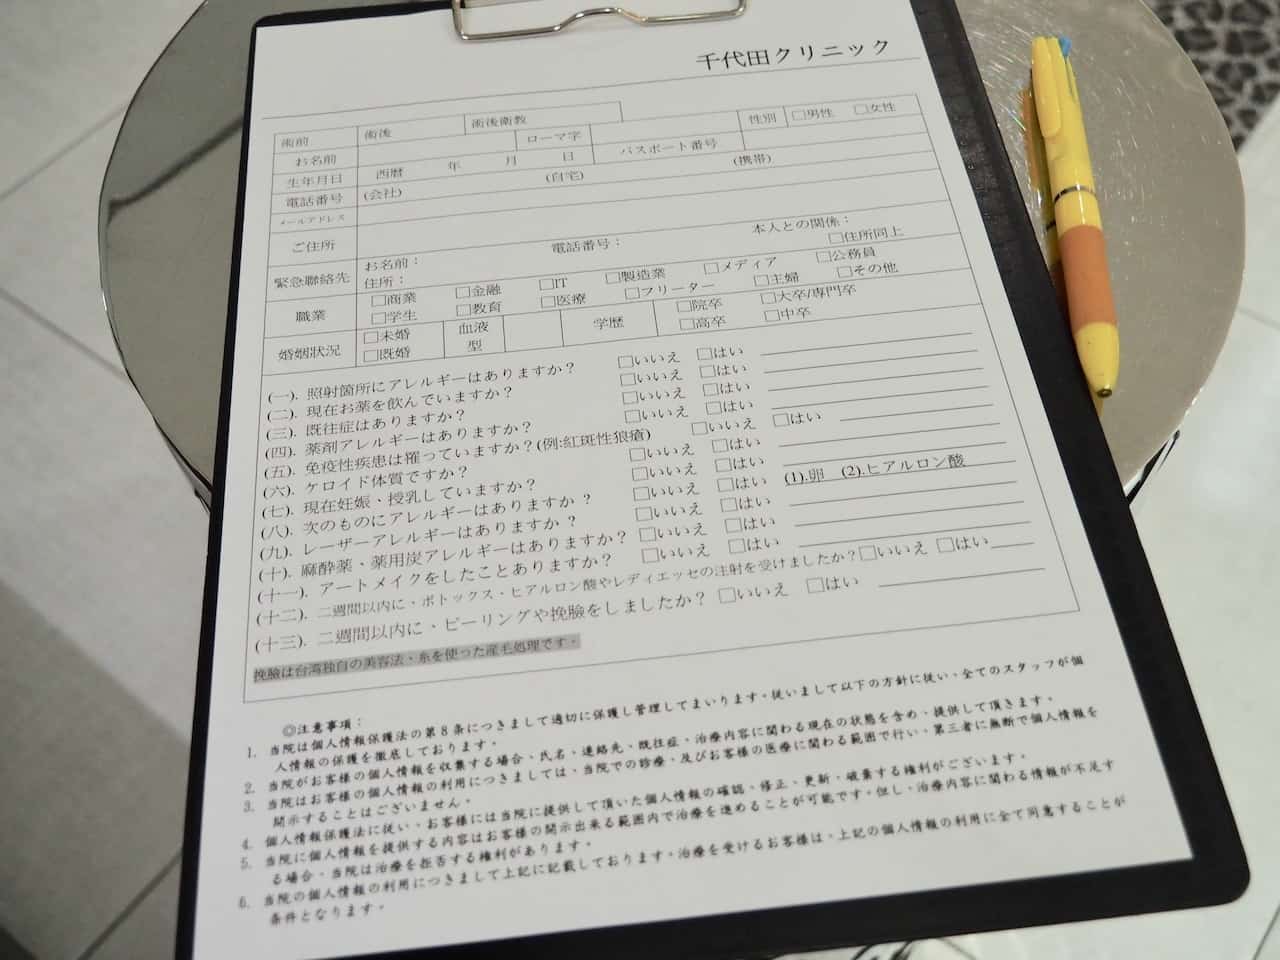 千代田クリニック
術前 術後 術後衛教
お名前 ローマ字 性別 □男性 □女性
生年月日 西暦 年 月 日 パスポート番号
電話番号 (会社) (自宅) (携帯)
メールアドレス
ご住所
緊急聯絡先 お名前： 電話番号： 本人との関係：
住所： □住所同上
職業 □商業 □金融 □IT □製造業 □メディア □公務員
□学生 □教育 □医療 □フリーター □主婦 □その他
婚姻狀況 □未婚 血液型 学歴 □院卒 □大卒/専門卒
□既婚 □高卒 □中卒
(一). 照射箇所にアレルギーはありますか？ □いいえ □はい
(二). 現在お薬を飲んでいますか？ □いいえ □はい
(三). 既往症はありますか？ □いいえ □はい
(四). 薬剤アレルギーはありますか？ □いいえ □はい
(五). 免疫性疾患は罹っていますか？(例:紅斑性狼瘡) □いいえ □はい
(六). ケロイド体質ですか？ □いいえ □はい
(七). 現在妊娠、授乳していますか？ □いいえ □はい
(八). 次のものにアレルギーはありますか ？ □いいえ □はい (1).卵 (2).ヒアルロン酸
(九). レーザーアレルギーはありますか ？ □いいえ □はい
(十). 麻酔薬、薬用炭アレルギーはありますか？ □いいえ □はい
(十一). アートメイクをしたことありますか？ □いいえ □はい
(十二). 二週間以内に、ボトックス・ヒアルロン酸やレディエッセの注射を受けましたか？□いいえ □はい
(十三). 二週間以内に、ピーリングや挽臉をしましたか？ □いいえ □はい
挽臉は台湾独自の美容法、糸を使った産毛処理です。
◎注意事項：
1. 当院は個人情報保護法の第8条につきまして適切に保護し管理してまいります。従いまして以下の方針に従い、全てのスタッフが個
人情報の保護を徹底しております。
2. 当院がお客様の個人情報を収集する場合、氏名、連絡先、既往症、治療内容に関わる現在の状態を含め、提供して頂きます。
3. 当院はお客様の個人情報の利用につきましては、当院での診療、及びお客様の医療に関わる範囲で行い、第三者に無断で個人情報を
開示することはございません。
4. 個人情報保護法に従い、お客様には当院に提供して頂いた個人情報の確認、修正、更新、破棄する権利がございます。
5. 当院に個人情報を提供する内容はお客様の開示出来る範囲内で治療を進めることが可能です。但し、治療内容に関わる情報が不足す
る場合、当院は治療を拒否する権利があります。
6. 当院の個人情報の利用につきまして上記に記載しております。治療を受けるお客様は、上記の個人情報の利用に全て同意することが
条件となります。